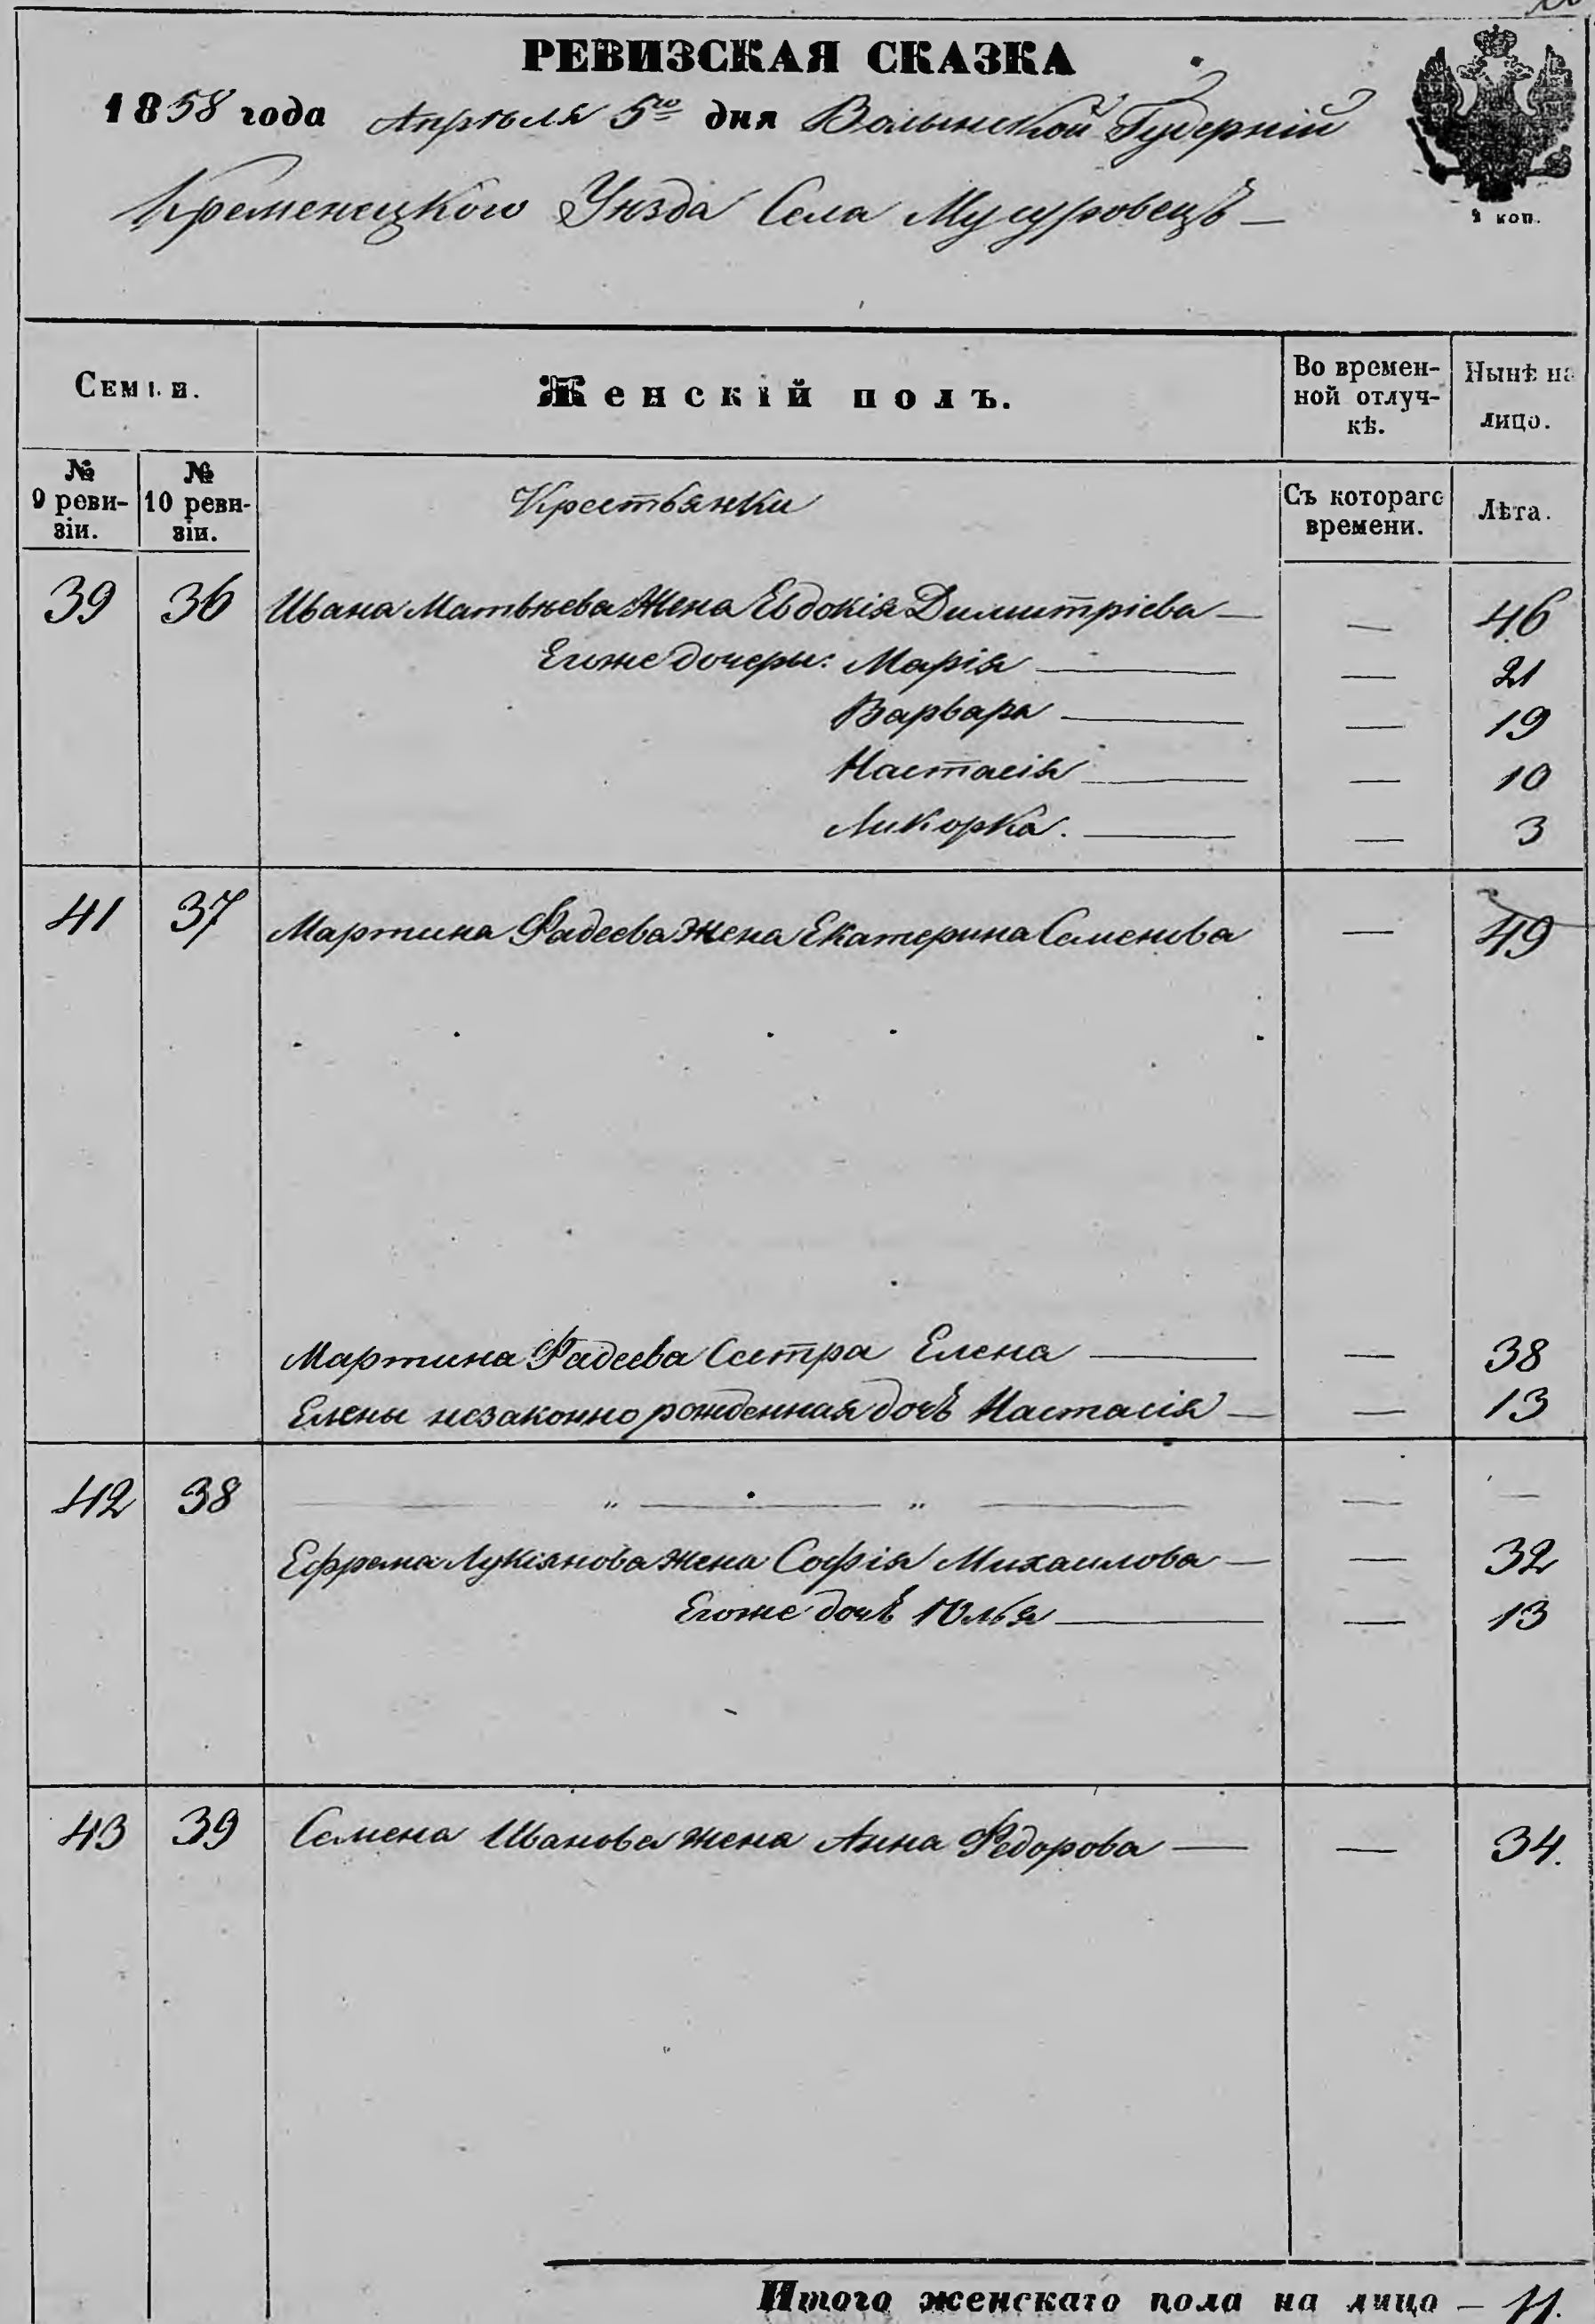 РЕВИЗСКАЯ СКАЗКА
1858 года Апрѣля 5го дня Волынской Губерніи
Кременецкого Уѣзда Села Мусуровецъ —
2 коп.
Семьи. Женскій полъ. Во времен-ной отлуч-кѣ. Нынѣ на лицо.
№ 9 реви-зіи. № 10 реви-зіи. Крестьянки Съ котораго времени. Лѣта.
39 36 Ивана Матвѣева Жена Евдокія Димитріева — — 46
Егоже дочеры: Марія — — 21
Варвара — — 19
Настасія — — 10
Ликорка. — — 3
41 37 Мартина Фадеева жена Екатерина Семенова — 49
Мартина Фадеева Сестра Елена — — 38
Елены незаконно рожденная дочь Настасія — — 13
42 38 — „ — „ — — —
Ефрема Лукіянова жена Софія Михаилова — — 32
Егоже дочь Юлья — — 13
43 39 Семена Иванова жена Анна Федорова — — 34.
Итого женскаго пола на лицо — 11.